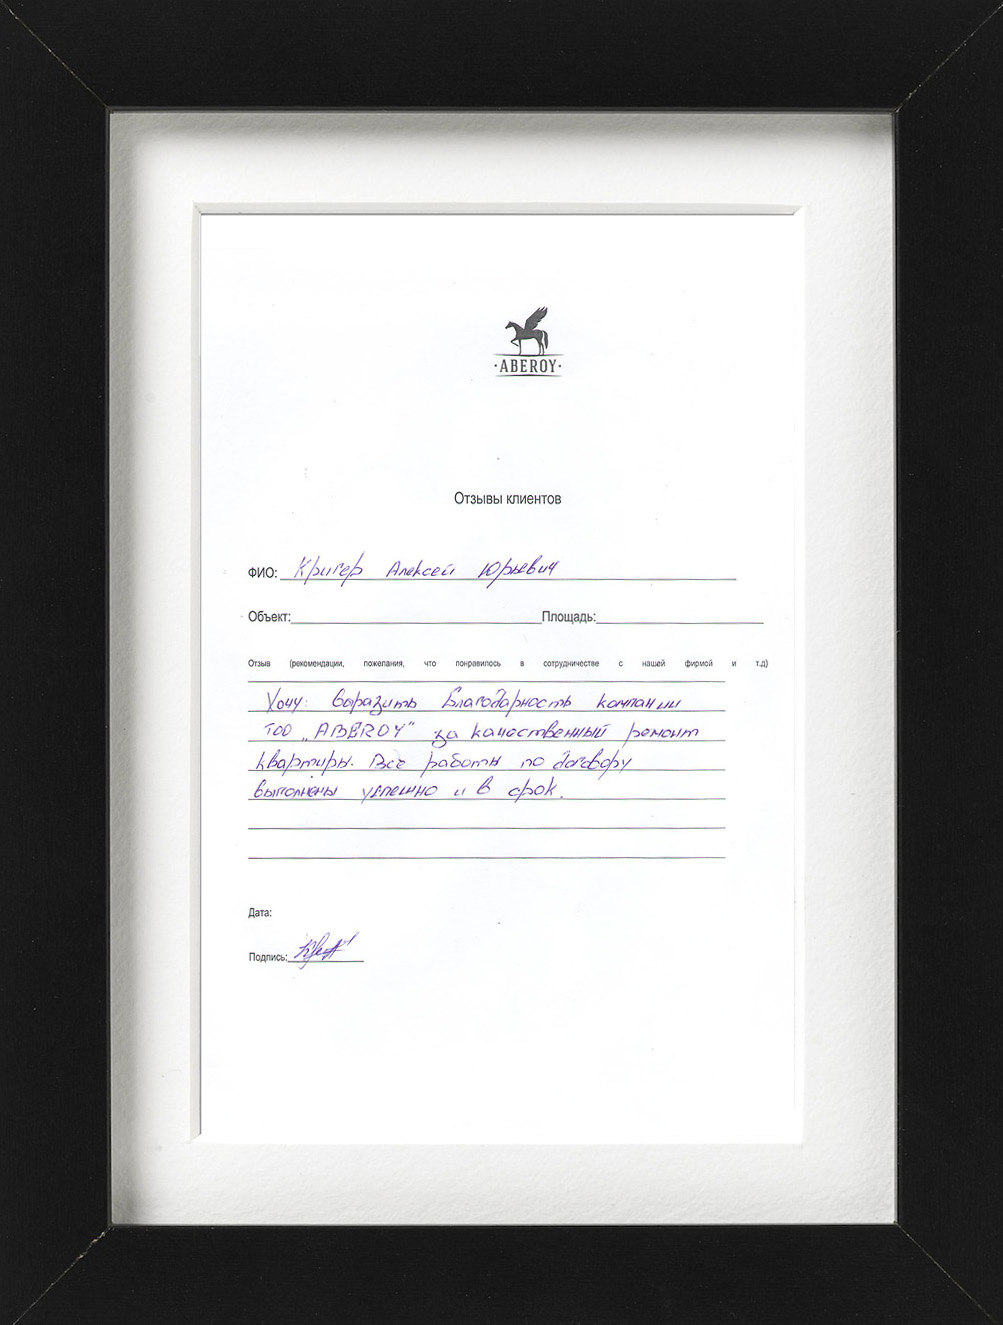 ·ABEROY·
Отзывы клиентов
ФИО: Кригер Алексей Юрьевич
Объект: Площадь:
Отзыв (рекомендации, пожелания, что понравилось в сотрудничестве с нашей фирмой и т.д)
Хочу выразить благодарность компании
ТОО „ABEROY" за качественный ремонт
квартиры. Все работы по договору
выполнены успешно и в срок.
Дата:
Подпись: